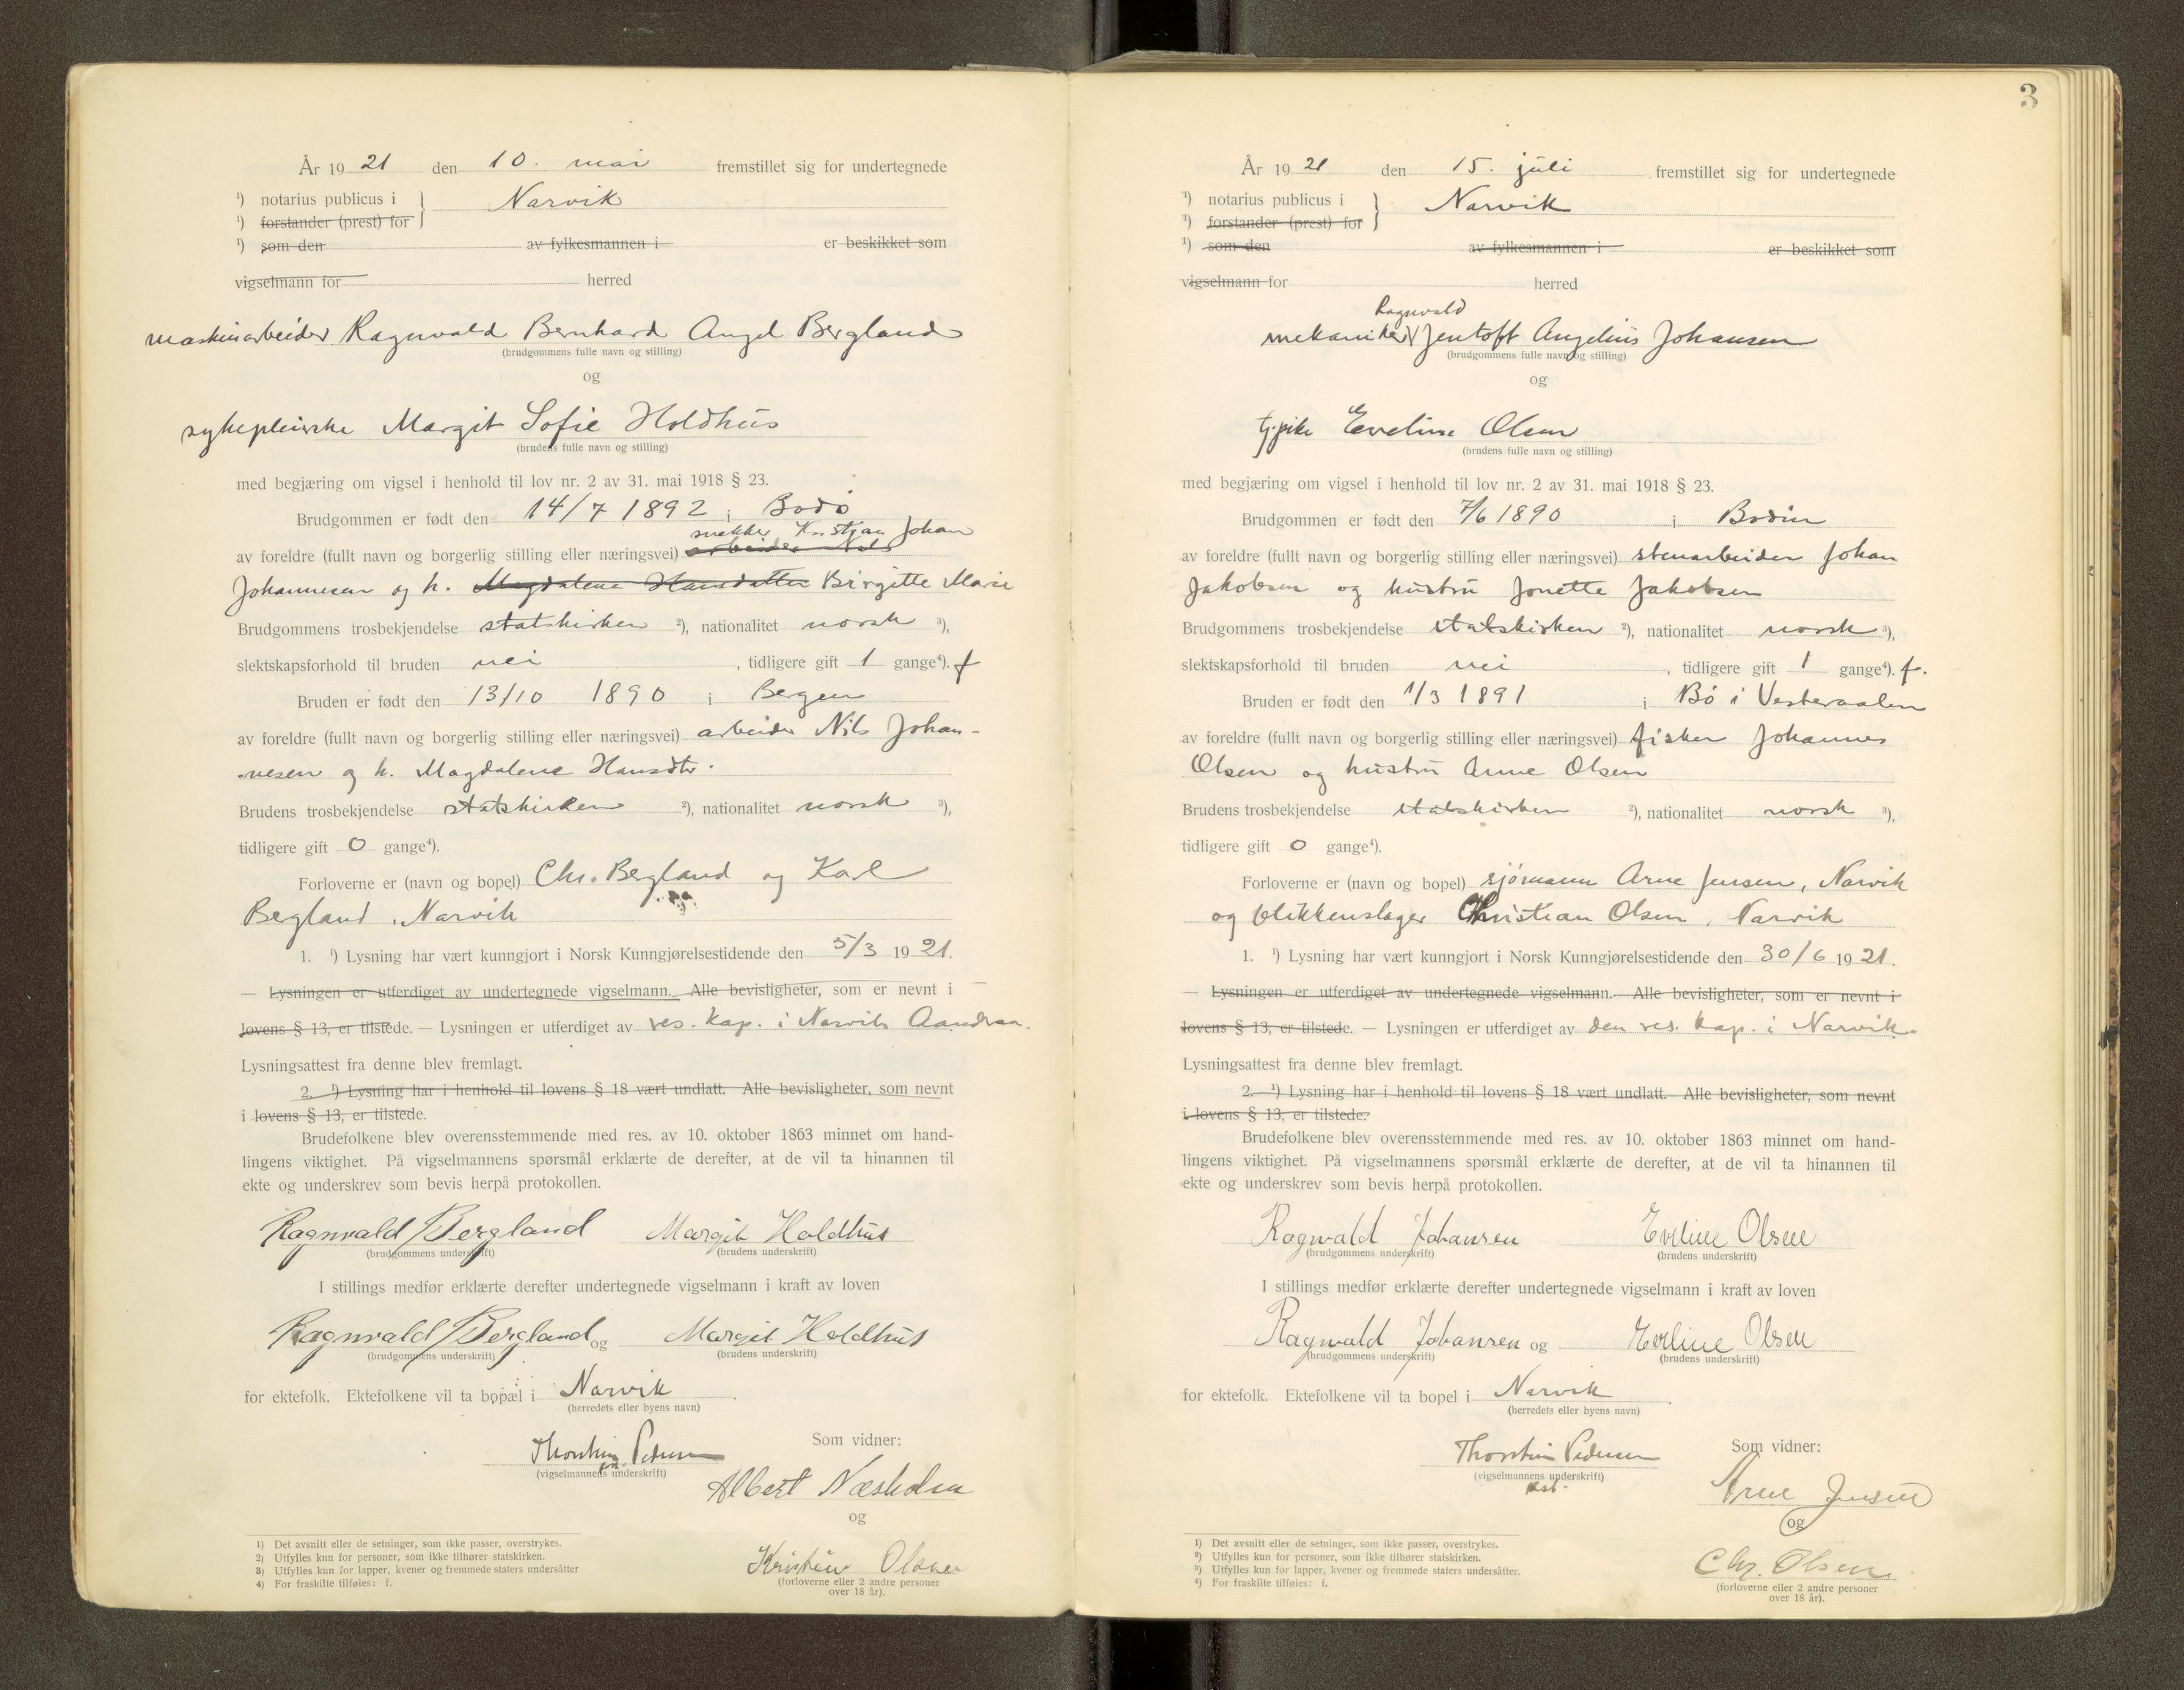 År 19 21 den 10. mai fremstillet sig for undertegnede
¹) notarius publicus i } Narvik
¹) forstander (prest) for
¹) som den av fylkesmannen i er beskikket som
vigselmann for herred
maskinarbeider Ragnvald Bernhard Angel Bergland
(brudgommens fulle navn og stilling)
og
sykepleierske Margit Sofie Holdhus
(brudens fulle navn og stilling)
med begjæring om vigsel i henhold til lov nr. 2 av 31. mai 1918 § 23.
Brudgommen er født den 14/7 1892 i Bodø
snekker Kristjan Johan
av foreldre (fullt navn og borgerlig stilling eller næringsvei) arbeider Nils
Johannesen og h. Magdalena Hansdatter Birgitte Marie
Brudgommens trosbekjendelse statskirken ²), nationalitet norsk ³),
slektskapsforhold til bruden nei , tidligere gift 1 gange⁴). f
Bruden er født den 13/10 1890 i Bergen
av foreldre (fullt navn og borgerlig stilling eller næringsvei) arbeider Nils Johan-
nesen og h. Magdalene Hansdtr.
Brudens trosbekjendelse statskirken ²), nationalitet norsk ³),
tidligere gift 0 gange⁴).
Forloverne er (navn og bopel) Chr. Bergland og Karl
Bergland, Narvik
1. ¹) Lysning har vært kunngjort i Norsk Kunngjørelsestidende den 5/3 19 21.
— Lysningen er utferdiget av undertegnede vigselmann. Alle bevisligheter, som er nevnt i
lovens § 13, er tilstede. — Lysningen er utferdiget av res. kap. i Narvik Aandraa.
Lysningsattest fra denne blev fremlagt.
2. ¹) Lysning har i henhold til lovens § 18 vært undlatt. Alle bevisligheter, som nevnt
i lovens § 13, er tilstede.
Brudefolkene blev overensstemmende med res. av 10. oktober 1863 minnet om hand-
lingens viktighet. På vigselmannens spørsmål erklærte de derefter, at de vil ta hinannen til
ekte og underskrev som bevis herpå protokollen.
Ragnvald Bergland Margit Holdhus
(brudgommens underskrift) (brudens underskrift)
I stillings medfør erklærte derefter undertegnede vigselmann i kraft av loven
Ragnvald Bergland og Margit Holdhus
(brudgommens underskrift) (brudens underskrift)
for ektefolk. Ektefolkene vil ta bopæl i Narvik .
(herredets eller byens navn)
Som vidner:
Thorstein Pedersen
(vigselmannens underskrift)
Albert Næsholm
og
Kristine Olsen
(forloverne eller 2 andre personer
over 18 år).
1) Det avsnitt eller de setninger, som ikke passer, overstrykes.
2) Utfylles kun for personer, som ikke tilhører statskirken.
3) Utfylles kun for lapper, kvener og fremmede staters undersåtter
4) For fraskilte tilføies: f.
3
År 19 21 den 15. juli fremstillet sig for undertegnede
¹) notarius publicus i } Narvik
¹) forstander (prest) for
¹) som den av fylkesmannen i er beskikket som
vigselmann for herred
Ragnvald
mekaniker Jentoft Angelius Johansen
(brudgommens fulle navn og stilling)
og
tj.pike Eveline Olsen
(brudens fulle navn og stilling)
med begjæring om vigsel i henhold til lov nr. 2 av 31. mai 1918 § 23.
Brudgommen er født den 7/6 1890 i Bodin
av foreldre (fullt navn og borgerlig stilling eller næringsvei) stenarbeider Johan
Jakobsen og hustru Jonette Jakobsen
Brudgommens trosbekjendelse statskirken ²), nationalitet norsk ³),
slektskapsforhold til bruden nei , tidligere gift 1 gange⁴). f.
Bruden er født den 1/3 1891 i Bø i Vesteraalen
av foreldre (fullt navn og borgerlig stilling eller næringsvei) fisker Johannes
Olsen og hustru Anne Olsen
Brudens trosbekjendelse statskirken ²), nationalitet norsk ³),
tidligere gift 0 gange⁴).
Forloverne er (navn og bopel) sjømann Arne Jensen, Narvik
og blikkenslager Christian Olsen, Narvik
1. ¹) Lysning har vært kunngjort i Norsk Kunngjørelsestidende den 30/6 19 21.
— Lysningen er utferdiget av undertegnede vigselmann. — Alle bevisligheter, som er nevnt i
lovens § 13, er tilstede. — Lysningen er utferdiget av den res. kap. i Narvik.
Lysningsattest fra denne blev fremlagt.
2. ¹) Lysning har i henhold til lovens § 18 vært undlatt. Alle bevisligheter, som nevnt
i lovens § 13, er tilstede.
Brudefolkene blev overensstemmende med res. av 10. oktober 1863 minnet om hand-
lingens viktighet. På vigselmannens spørsmål erklærte de derefter, at de vil ta hinannen til
ekte og underskrev som bevis herpå protokollen.
Ragnvald Johansen Eveline Olsen
(brudgommens underskrift) (brudens underskrift)
I stillings medfør erklærte derefter undertegnede vigselmann i kraft av loven
Ragnvald Johansen og Eveline Olsen
(brudgommens underskrift) (brudens underskrift)
for ektefolk. Ektefolkene vil ta bopel i Narvik .
(herredets eller byens navn)
Som vidner:
Thorstein Pedersen
(vigselmannens underskrift)
Arne Jensen
og
Chr. Olsen
(forloverne eller 2 andre personer
over 18 år).
1) Det avsnitt eller de setninger, som ikke passer, overstrykes.
²) Utfylles kun for personer, som ikke tilhører statskirken.
³) Utfylles kun for lapper, kvener og fremmede staters undersåtter.
⁴) For fraskilte tilføies: f.